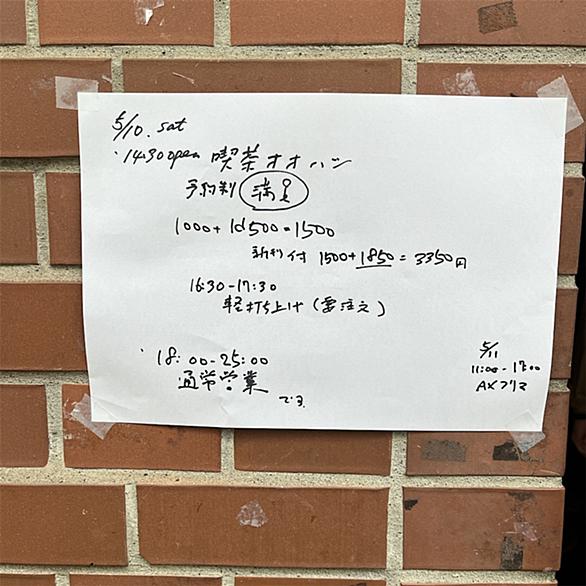 5/10. sat
・14:30 open 喫茶オオハシ
予約制 満員
1000+1d500=1500
新刊付 1500+1850=3350円
16:30-17:30
軽打ち上げ(要注文)
・18:00-25:00
通常営業
です。
5/11
11:00-17:00
AXフリマ